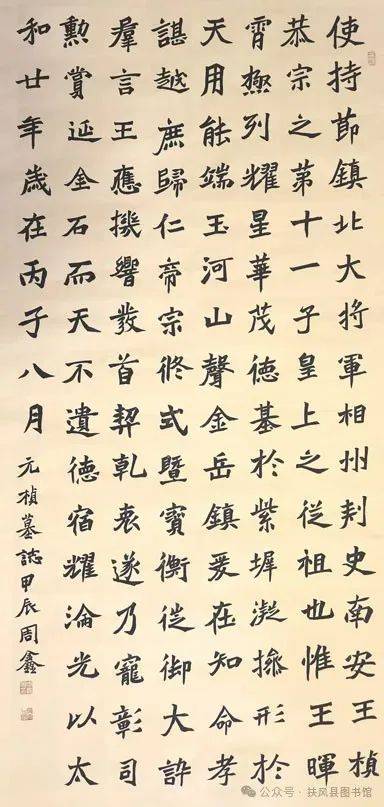 使持節鎮北大將軍相州刾史南安王楨
恭宗之第十一子皇上之從祖也惟王暉
霄極列耀星華茂德基於紫墀凝操形於
天用能端玉河山聲金岳鎮爰在知命孝
諶越庶歸仁帝宗攸式暨寶衡徙御大訏
羣言王應機響發首契乾衷遂乃寵彰司
勳賞延金石而天不遺德宿耀淪光以太
和廿年歲在丙子八月
元楨墓誌甲辰周鑫
公众号 · 扶风县图书馆